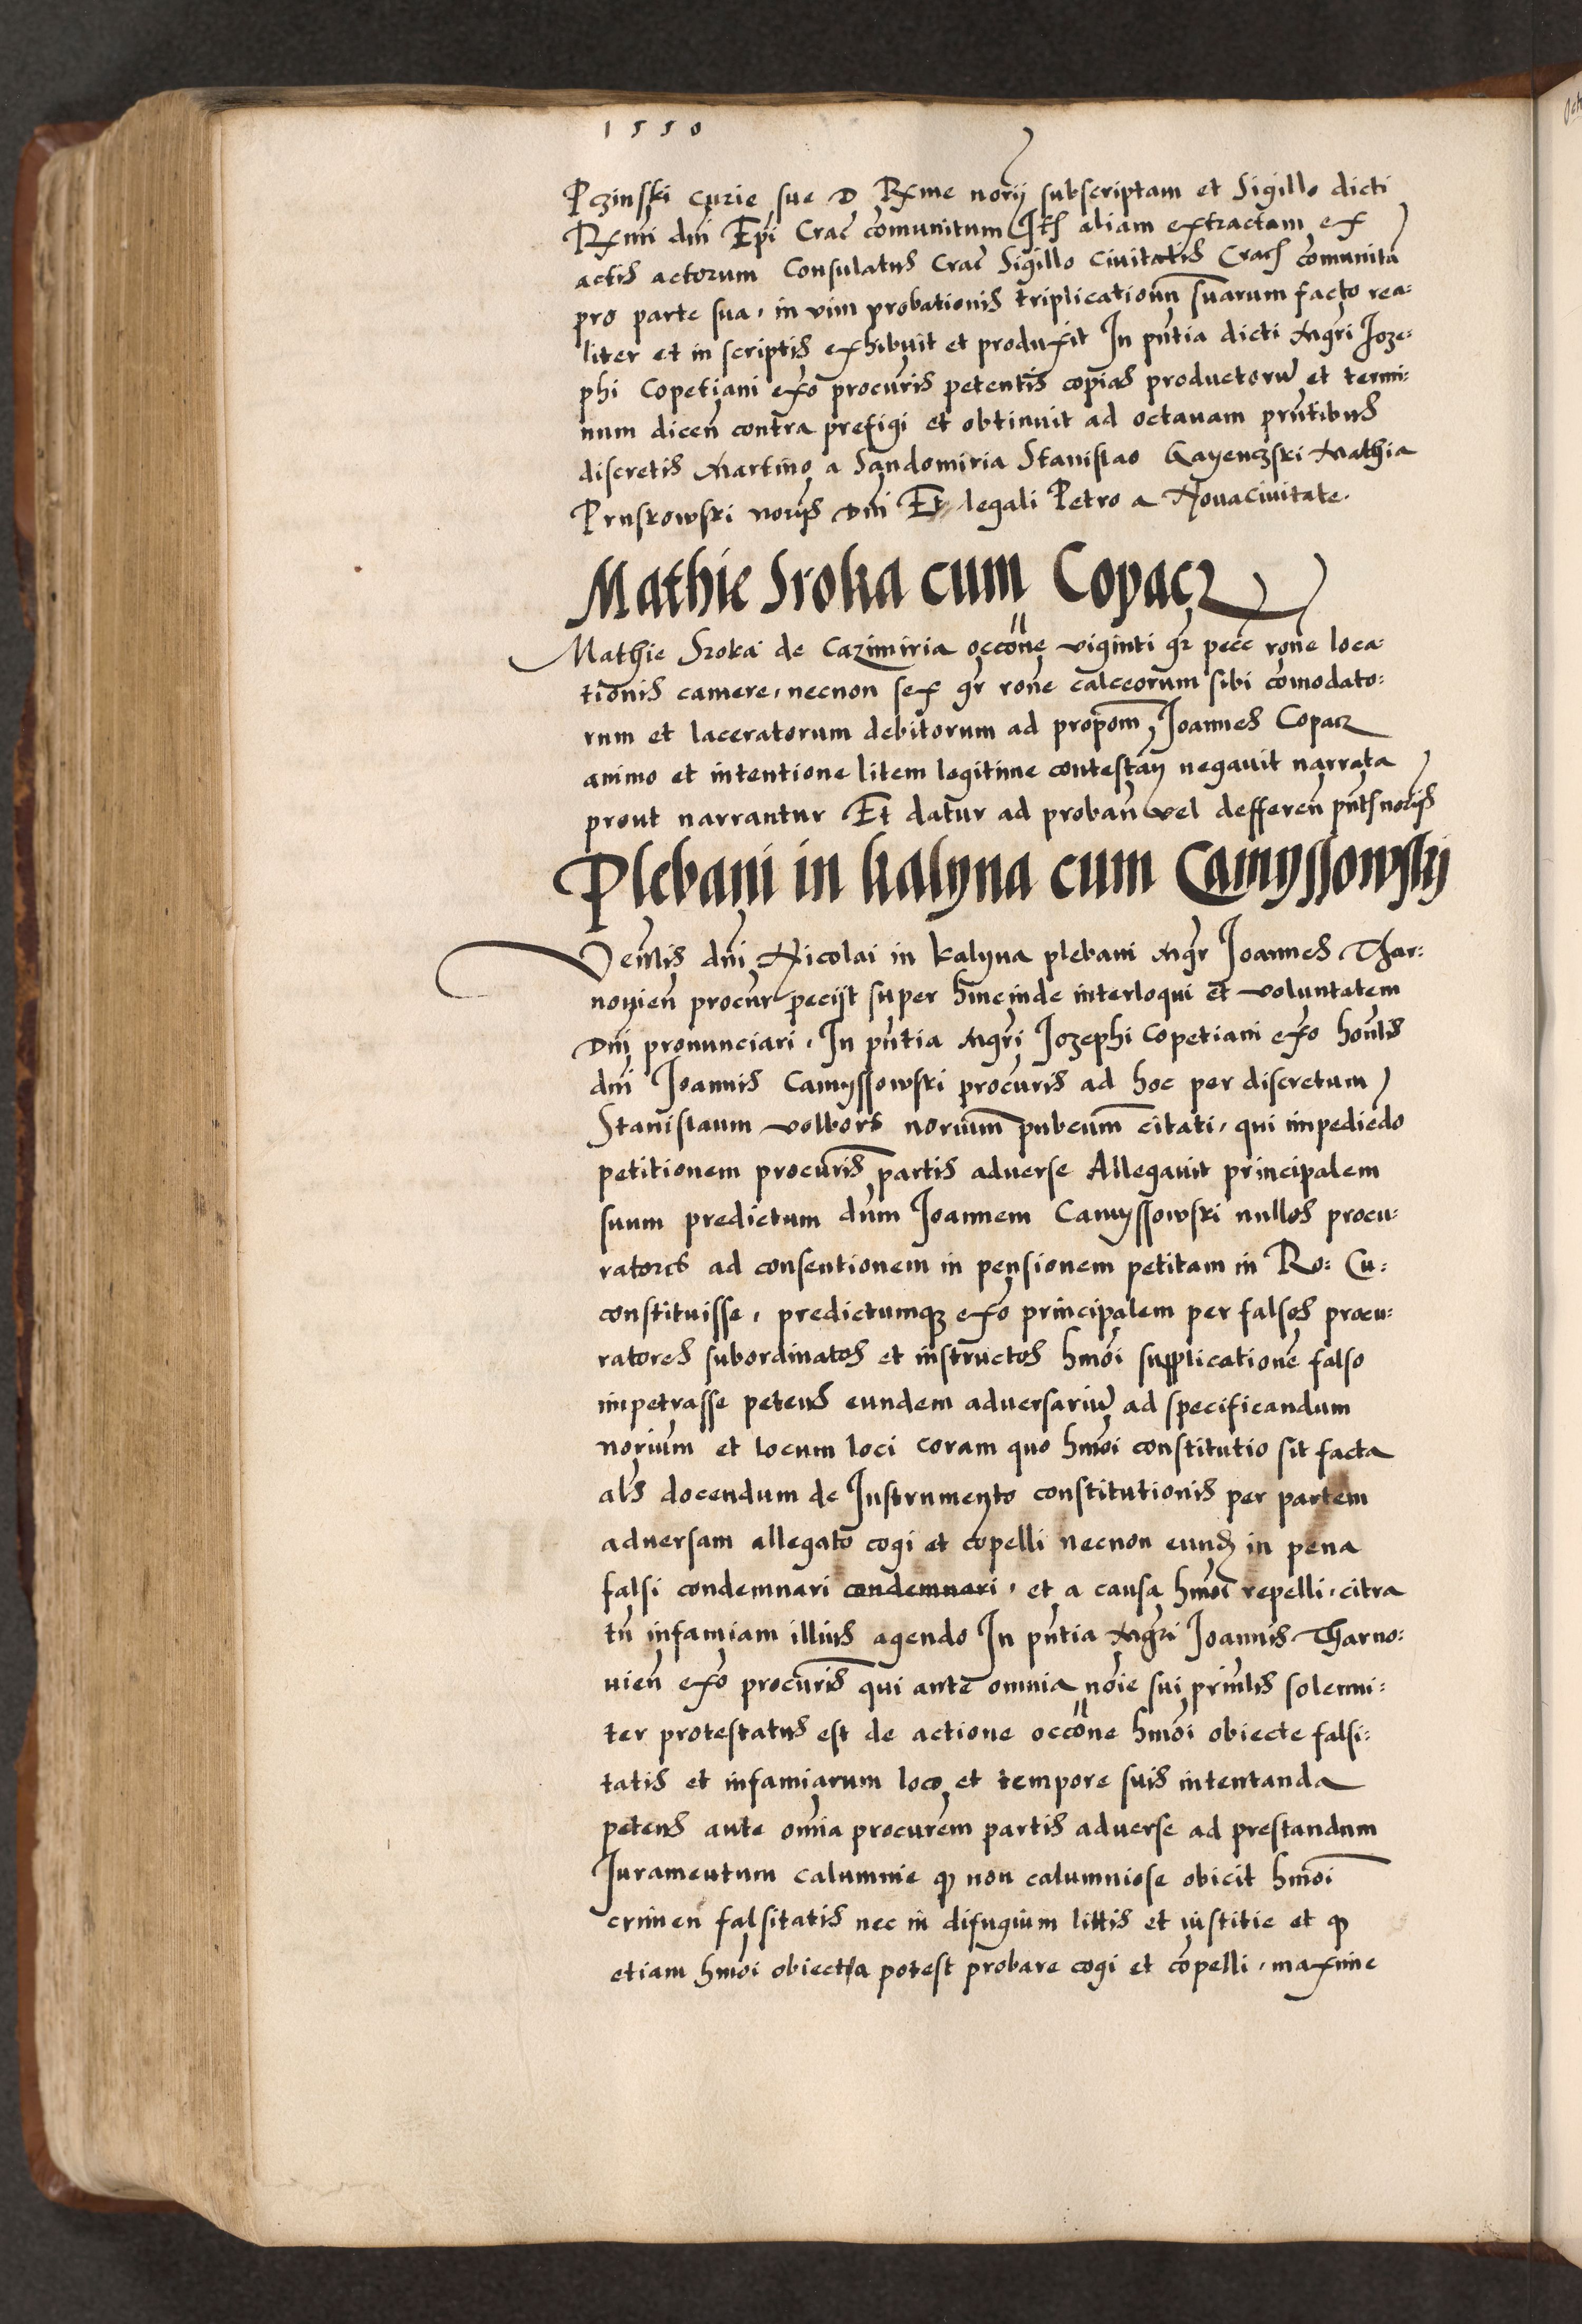 1550
Pczinski curie sue D Rxme norij subscriptam et Sigillo dicti
Rxmi dni Epi Crac comunitum Ite aliam extractam ex
actis actorum Consulatus Crac Sigillo Civitatis Crac comunita
pro parte sua, in vim probationis triplicationu suarum facto rea-
liter et in scriptis exhibuit et produxit In pntia dicti Mgri Joze-
phi Copetiani exo procuris petentis copias productoru et termi-
num dicen contra prefigi et obtinuit ad octavam prntibus
discretis Martino a Sandomiria Stanislao Gayenczski Mathia
Pruskowski norijs Dni Et legali Petro a Novacivitate.
Mathie Sroka cum Copacz
Mathie Sroka de Cazimiria occone viginti gr pecc rone loca-
tionis camere, necnon sex gr rone calceorum sibi comodato-
rum et laceratorum debitorum ad propom, Joannes Copacz
animo et intentione litem legitime contestan negavit narrata
prout narrantur Et datur ad proban vel defferen pnt norijs
Plebani in kalyna cum Camyssowskij
Venlis dni Nicolai in kalyna plebani Mgr Joannes Thar-
novien procur petijt super hincinde interloqui et voluntatem
Dni pronunciari, In pntia Mgri Jozephi Copetiani exo honlis
dni Joannis Camyssowski procuris ad hoc per discretum
Stanislaum volbors norium pubcum citati, qui impediedo
petitionem procuris partis adverse Allegavit principalem
suum predictum dnm Joannem Camyssowski nullos procu-
ratores ad consentionem in pensionem petitam in Ro: Cu:
constituisse, predictumq exo principalem per falsos procu-
ratores subordinatos et instructos hmoi supplicatione falso
impetrasse petens eundem adversariu ad specificandum
norium et locum loci coram quo hmoi constitutio sit facta
als docendum de Instrumento constitutionis per partem
adversam allegato cogi et copelli necnon eund in pena
falsi condemnari condemnari, et a causa hmoi repelli, citra
tn infamiam illius agendo In pntia Mgri Joannis Tharno-
vien exo procuris qui ante omnia noie sui prinlis solenni-
ter protestatus est de actione occone hmoi obiecte falsi-
tatis et infamiarum loco et tempore suis intentanda
petens ante omia procurem partis adverse ad prestandum
Iuramentum calumnie q non calumniose obicit hmoi
crimen falsitatis nec in difugium littis et iustitie et q
etiam hmoi obiecta potest probare cogi et copelli, maxime